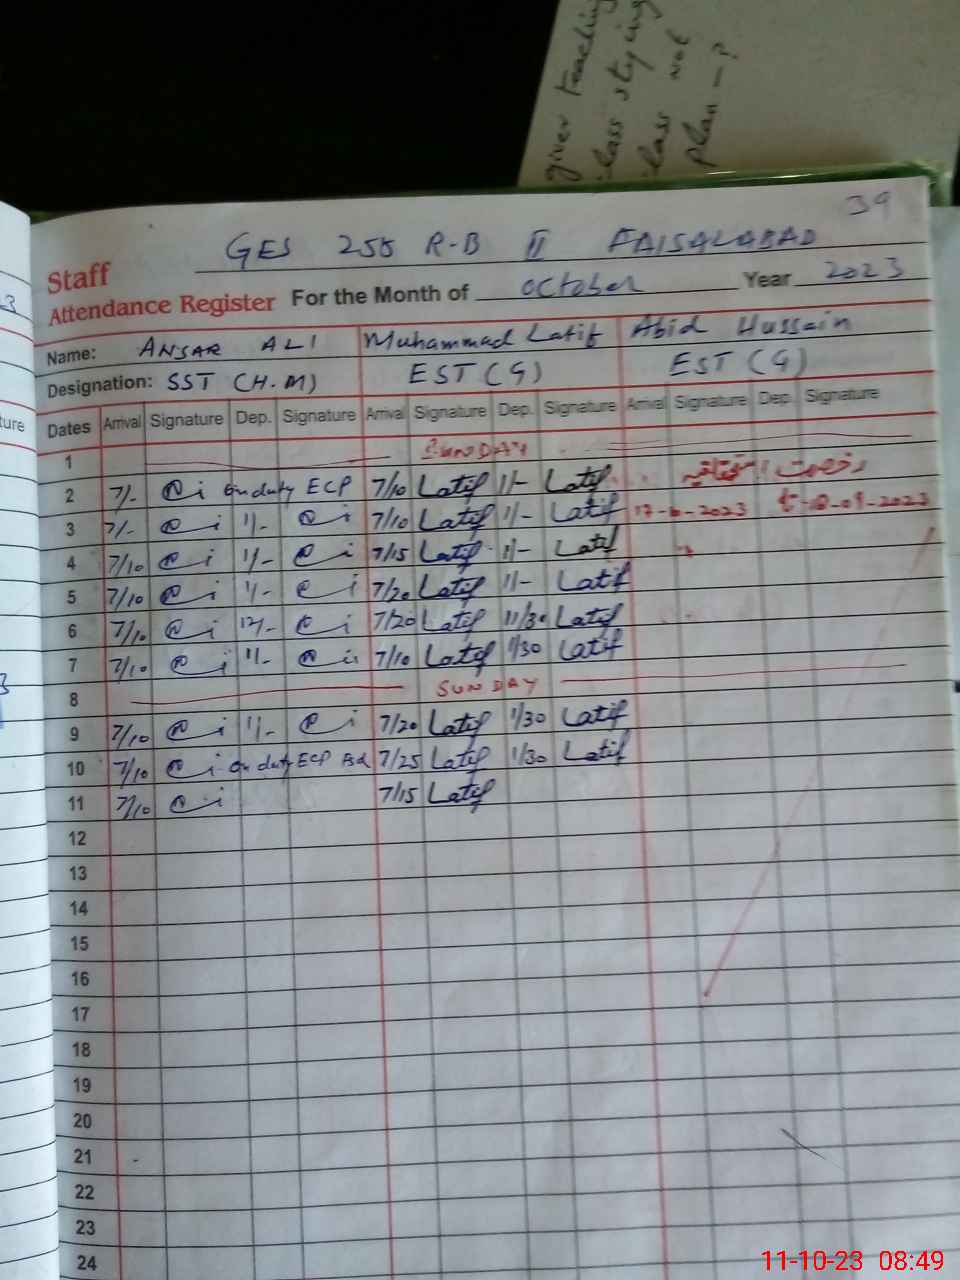 giver teaching
class stying
class not
plan - ?
39
GES 255 R-B II FAISALABAD
Staff
Attendance Register For the Month of October Year 2023
Name: ANSAR ALI Muhammad Latif Abid Hussain
Designation: SST (H.M) EST (G) EST (G)
Dates Arrival Signature Dep. Signature Arrival Signature Dep. Signature Arrival Signature Dep. Signature
1 SUNDAY
2 7/- on duty ECP 7/10 Latif 1/- Latif رخصت
3 7/- 1/- 7/10 Latif 1/- Latif
4 7/10 1/- 7/15 Latif 1/- Latif
5 7/10 1/- 7/20 Latif 1/- Latif
6 7/10 12/- 7/20 Latif 11/30 Latif
7 7/10 1/- 7/10 Latif 1/30 Latif
8 SUNDAY
9 7/10 1/- 7/20 Latif 1/30 Latif
10 7/10 on duty ECP Fsd 7/25 Latif 1/30 Latif
11 7/10 7/15 Latif
12
13
14
15
16
17
18
19
20
21
22
23
24
11-10-23 08:49